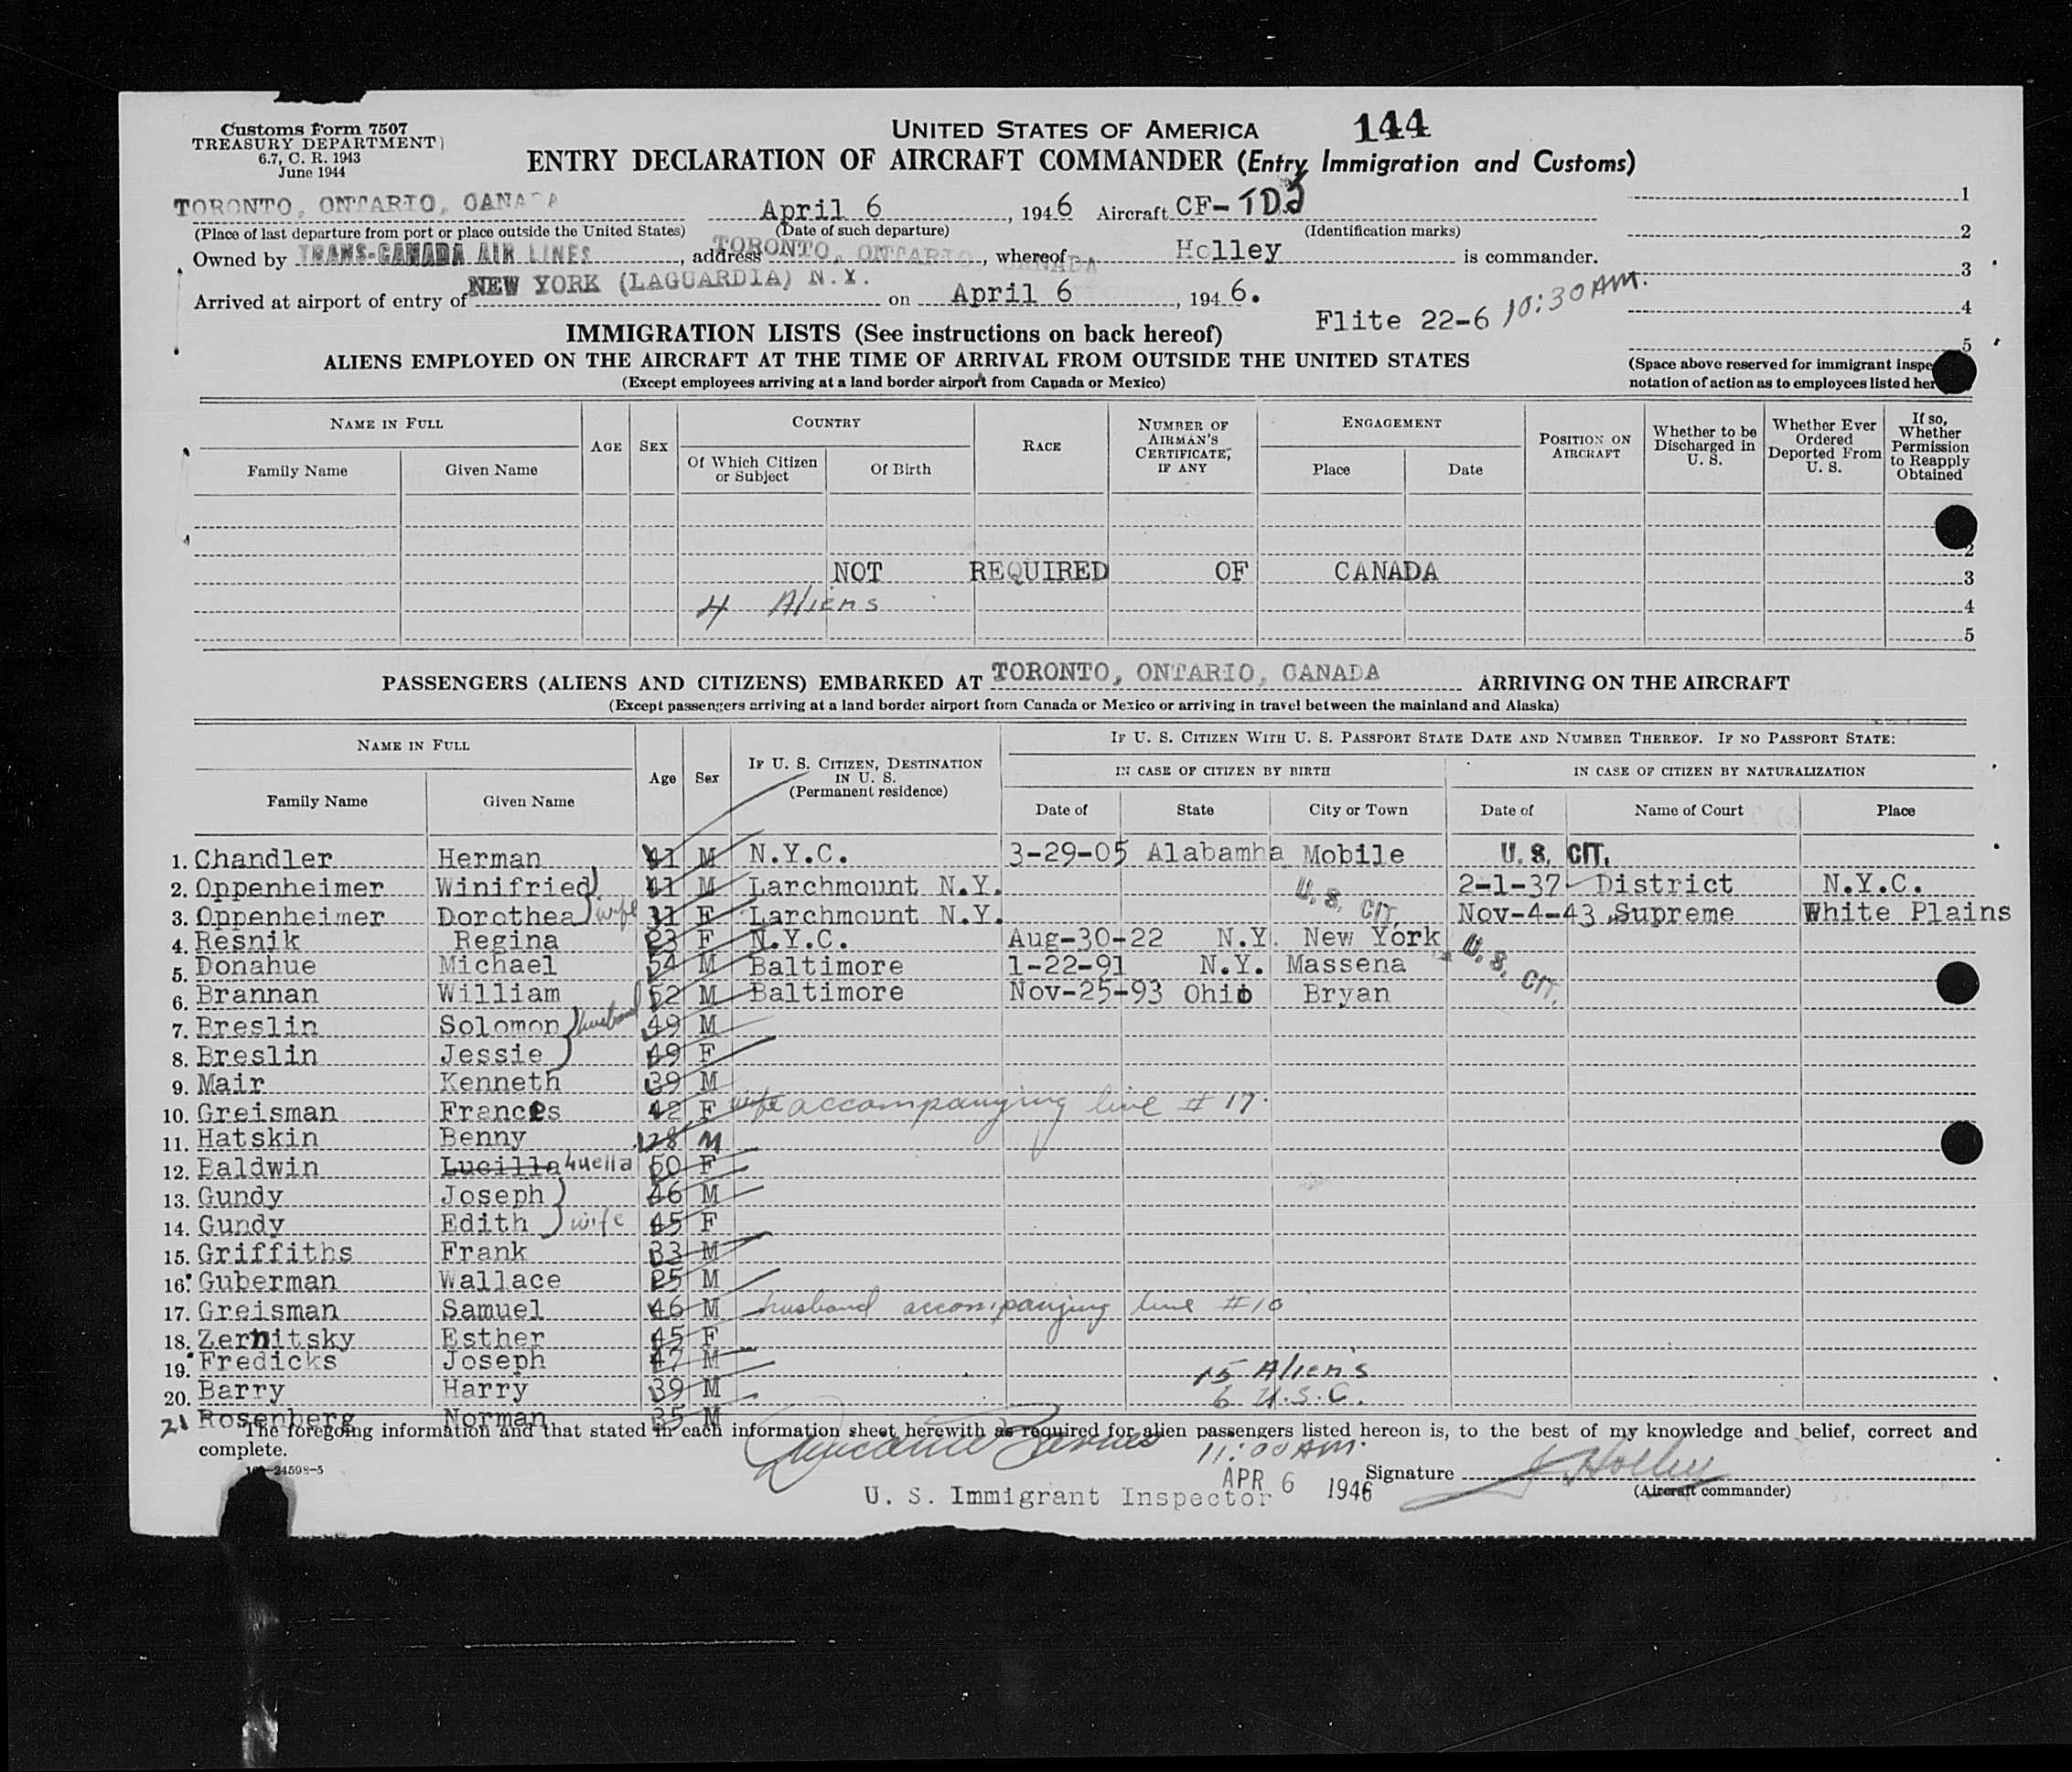 Customs Form 7507
TREASURY DEPARTMENT)
6.7, C. R. 1943
June 1944
UNITED STATES OF AMERICA 144
ENTRY DECLARATION OF AIRCRAFT COMMANDER (Entry Immigration and Customs)
TORONTO, ONTARIO, CANADA April 6, 1946 Aircraft CF-TDJ 1
(Place of last departure from port or place outside the United States) (Date of such departure) (Identification marks) 2
Owned by TRANS-CANADA AIR LINES, address TORONTO, ONTARIO, CANADA, whereof Holley is commander. 3
Arrived at airport of entry of NEW YORK (LAGUARDIA) N.Y. on April 6, 1946. 4
Flite 22-6 10:30 AM. 5
IMMIGRATION LISTS (See instructions on back hereof)
ALIENS EMPLOYED ON THE AIRCRAFT AT THE TIME OF ARRIVAL FROM OUTSIDE THE UNITED STATES (Space above reserved for immigrant inspe
(Except employees arriving at a land border airport from Canada or Mexico) notation of action as to employees listed her
NAME IN FULL AGE SEX COUNTRY RACE NUMBER OF AIRMAN'S CERTIFICATE, IF ANY ENGAGEMENT POSITION ON AIRCRAFT Whether to be Discharged in U. S. Whether Ever Ordered Deported From U. S. If so, Whether Permission to Reapply Obtained
Family Name Given Name Of Which Citizen or Subject Of Birth Place Date
2
NOT REQUIRED OF CANADA 3
4 Aliens 4
5
PASSENGERS (ALIENS AND CITIZENS) EMBARKED AT TORONTO, ONTARIO, CANADA ARRIVING ON THE AIRCRAFT
(Except passengers arriving at a land border airport from Canada or Mexico or arriving in travel between the mainland and Alaska)
NAME IN FULL Age Sex IF U. S. CITIZEN, DESTINATION IN U. S. (Permanent residence) IF U. S. CITIZEN WITH U. S. PASSPORT STATE DATE AND NUMBER THEREOF. IF NO PASSPORT STATE:
IN CASE OF CITIZEN BY BIRTH IN CASE OF CITIZEN BY NATURALIZATION
Family Name Given Name Date of State City or Town Date of Name of Court Place
1. Chandler Herman 41 M N.Y.C. 3-29-05 Alabamha Mobile U. S. CIT.
2. Oppenheimer Winifried 41 M Larchmount N.Y. 2-1-37 District N.Y.C.
3. Oppenheimer Dorothea wife 31 F Larchmount N.Y. U. S. CIT. Nov-4-43 Supreme White Plains
4. Resnik Regina 23 F N.Y.C. Aug-30-22 N.Y. New York
5. Donahue Michael 54 M Baltimore 1-22-91 N.Y. Massena U. S. CIT.
6. Brannan William 52 M Baltimore Nov-25-93 Ohio Bryan
7. Breslin Solomon husband 49 M
8. Breslin Jessie 49 F
9. Mair Kenneth 39 M
10. Greisman Frances 42 F wife accompanying line # 17.
11. Hatskin Benny 28 M
12. Baldwin Lucilla Luella 50 F
13. Gundy Joseph 46 M
14. Gundy Edith wife 45 F
15. Griffiths Frank 33 M
16. Guberman Wallace 25 M
17. Greisman Samuel 46 M husband accompanying line #10
18. Zernitsky Esther 45 F
19. Fredicks Joseph 47 M 15 Alien's
20. Barry Harry 39 M 6 U.S.C.
21 Rosenberg Norman 35 M
The foregoing information and that stated in each information sheet herewith as required for alien passengers listed hereon is, to the best of my knowledge and belief, correct and
complete.
11:00 AM.
24598-5 Signature Holley
U. S. Immigrant Inspector APR 6 1946 (Aircraft commander)